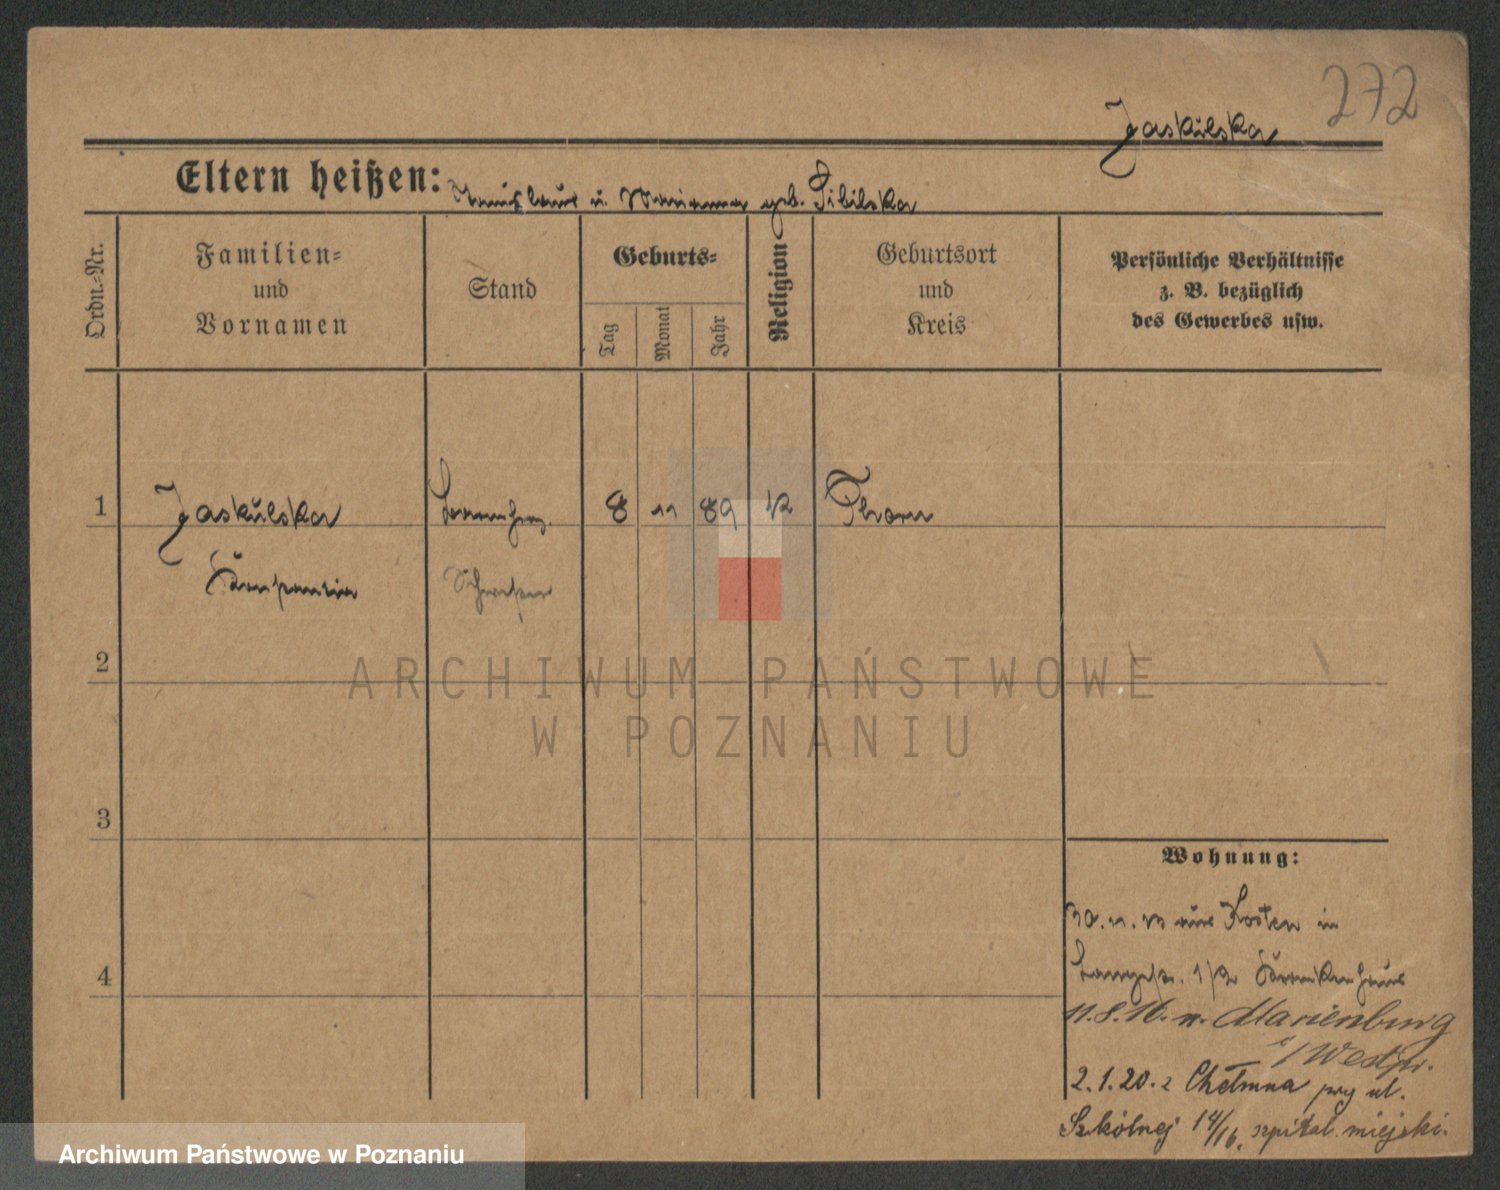 272
Jaskulska
Eltern heißen: Stanislaus u. Marianna geb. Sibilska
Ordn.-Nr.
Familien-
und
Vornamen
Stand
Geburts-
Tag
Monat
Jahr
Religion
Geburtsort
und
Kreis
Persönliche Verhältnisse
z. B. bezüglich
des Gewerbes usw.
1
Jaskulska
8 11 89 k Thorn
Schwester
2
ARCHIWUM PAŃSTWOWE
W POZNANIU
3
Wohnung:
30. 11. 13 aus Kosten in
4
1/2 Krankenhaus
11.8.16. n. Marienburg
i/Westpr.
2.1.20. z Chełmna przy ul.
Szkólnej 14/16. szpital miejski.
Archiwum Państwowe w Poznaniu